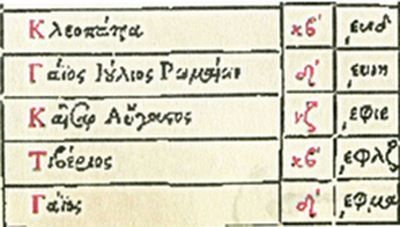 Κλεοπάτρα κβʹ ͵ευνδ
Γάϊος Ἰούλιος Ρωμαίων δʹ ͵ευνη
Καῖσαρ Αὔγουστος νζ ͵εφιε
Τιβέριος κβʹ ͵εφλζ
Γάϊος δʹ ͵εφμα